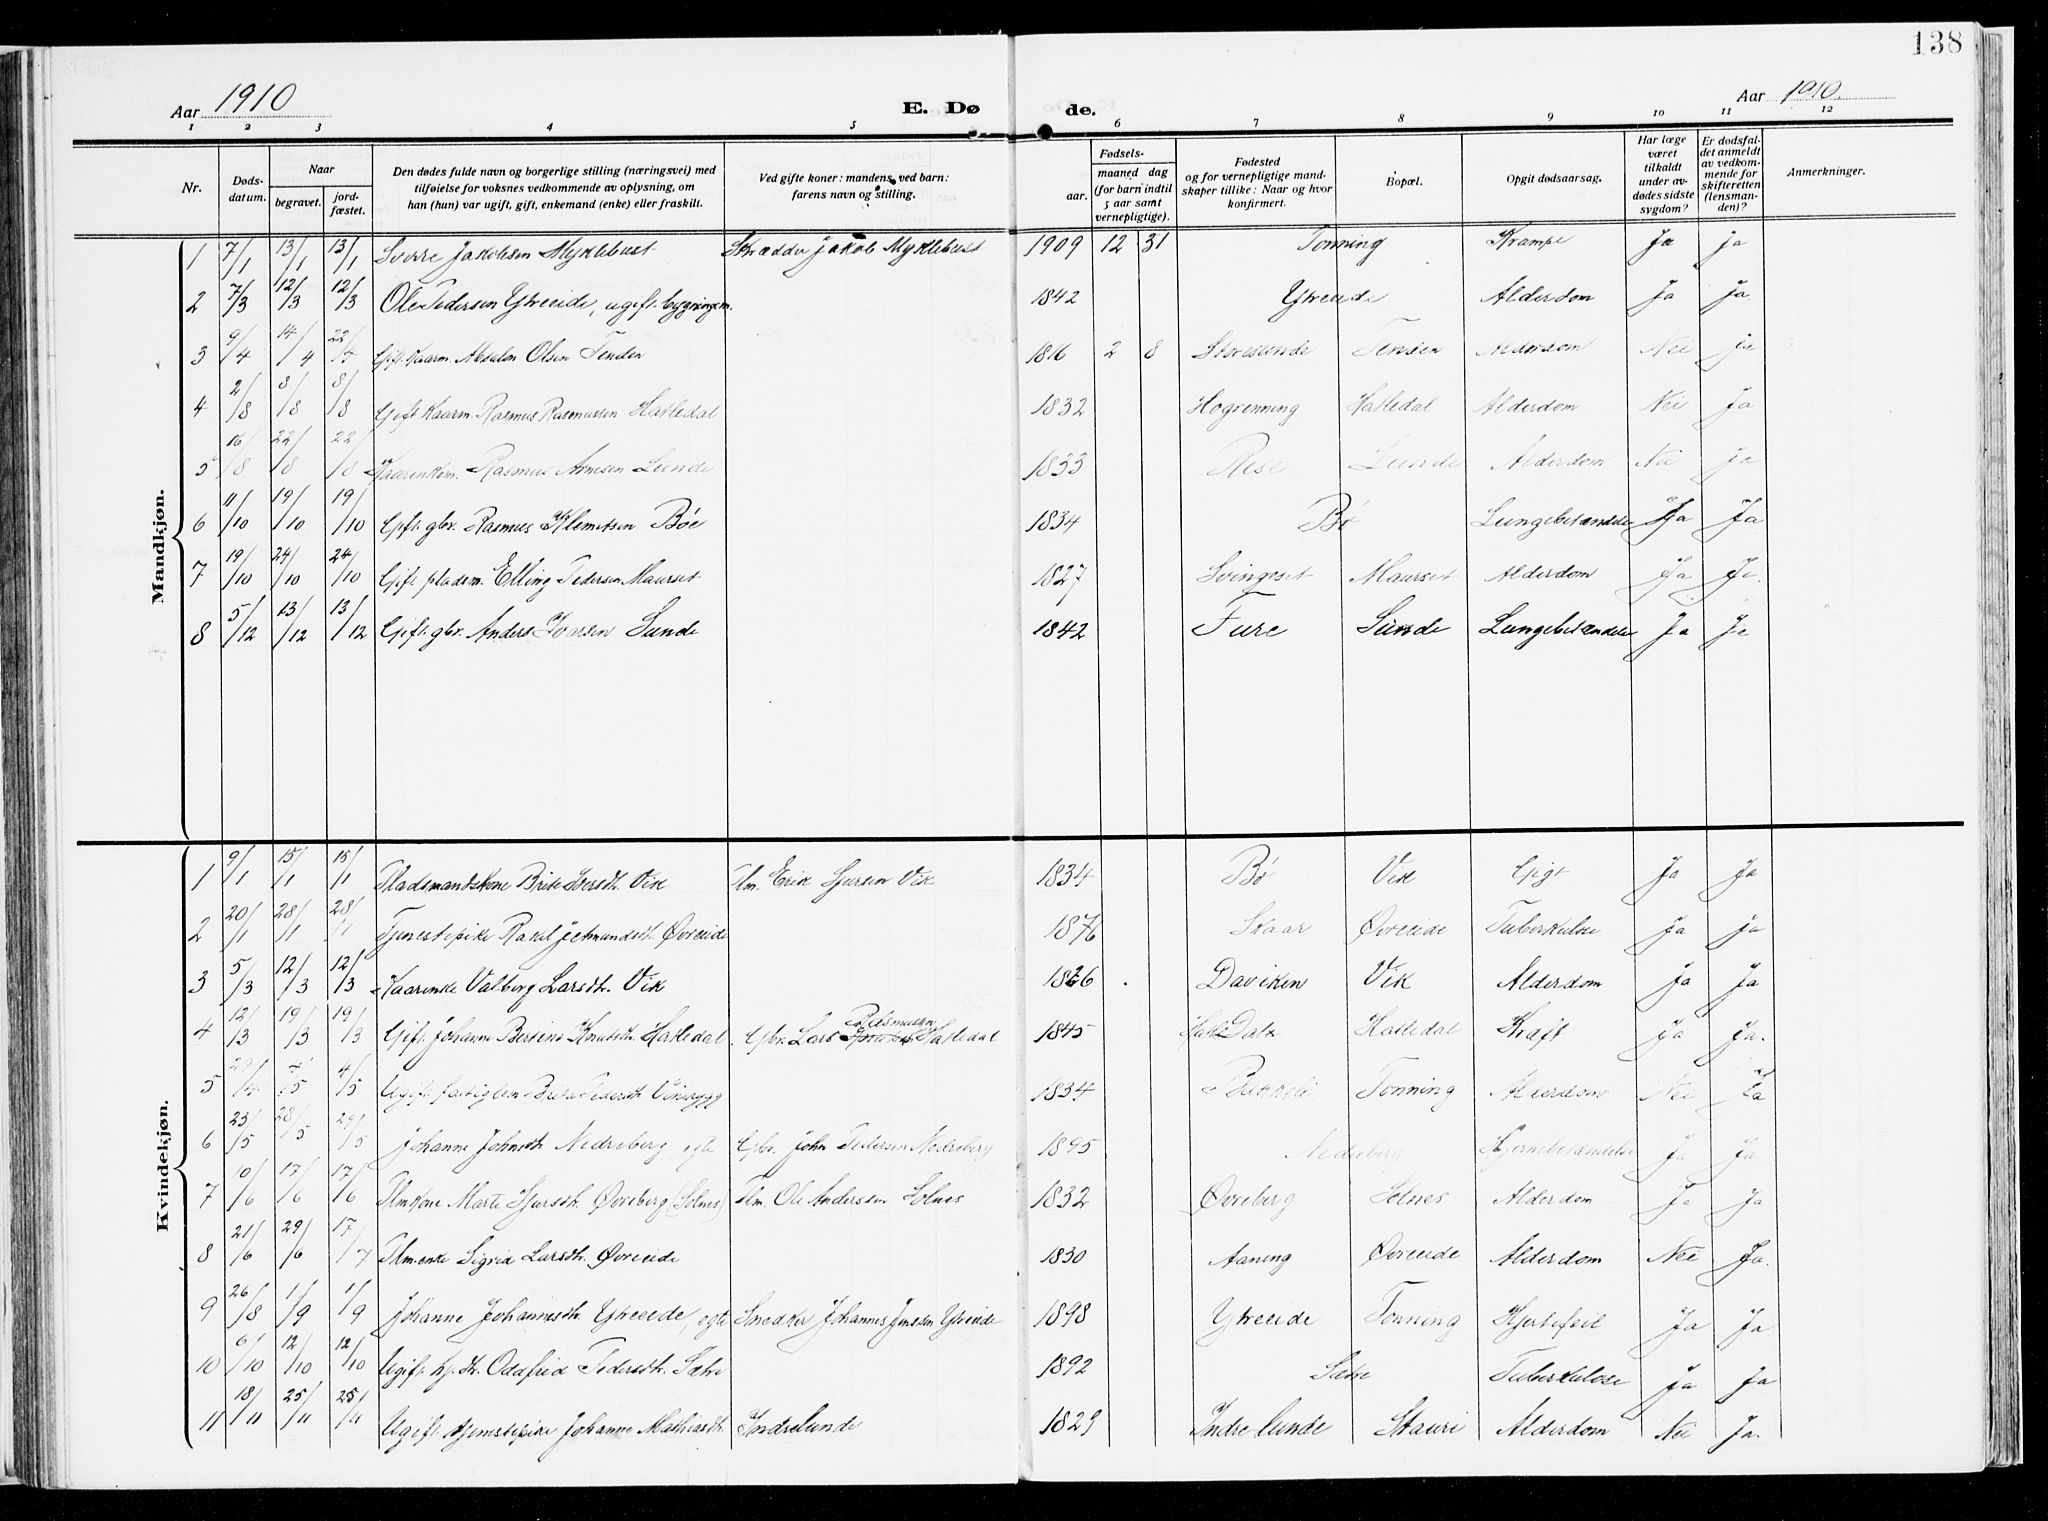 138
Aar 1910
E. Dø
de.
Aar 1910.
1 2 3 4 5 6 7 8 9 10 11 12
Nr.
Døds-
datum.
Naar
begravet.
jord-
fæstet.
Den dødes fulde navn og borgerlige stilling (næringsvei) med
tilføielse for voksnes vedkommende av oplysning, om
han (hun) var ugift, gift, enkemand (enke) eller fraskilt.
Ved gifte koner: mandens, ved barn:
farens navn og stilling.
Fødsels-
aar.
maaned dag
(for barn indtil
5 aar samt
vernepligtige).
Fødested
og for vernepligtige mand-
skaper tillike: Naar og hvor
konfirmert.
Bopæl.
Opgit dødsaarsag.
Har læge
været
tilkaldt
under av-
dødes sidste
sygdom?
Er dødsfal-
det anmeldt
av vedkom-
mende for
skifteretten
(lensman-
den)?
Anmerkninger.
Mandkjøn.
1 7/1 13/1 13/1 Sverre Jakobsen Myklebust Skrædder Jakob Myklebust 1909 12 31 Tonning Krampe Ja ja
2 7/3 12/3 12/3 Ole Pedersen Ytreeide, ugift bygningsm. 1842 Ytreeide Alderdom Ja Ja
3 9/4 14/4 22/7 Gift Kaarm. Absalon Olsen Tenden 1816 2 8 Storesunde Tenden Alderdom Nei ja
4 2/8 8/8 8/8 Gift Kaarm. Rasmus Rasmussen Hatledal 1832 Hogrenning Hatledal Alderdom Nei Ja
5 16/8 22/8 22/8 Kaarenkem. Rasmus Arnesen Lunde 1833 Rise Lunde Alderdom Nei ja
6 11/10 19/10 19/10 Gift gbr. Rasmus Klemetsen Bøe 1834 Bø Lungebetændelse Ja Ja
7 19/10 24/10 24/10 Gift pladsm. Elling Pedersen Maurset 1827 Svingeset Maurset Alderdom Ja Ja.
8 5/12 13/12 13/12 Gift gbr. Anders Ivarsen Sunde 1842 Fure Sunde Lungebetændelse Ja Ja
Kvindekjøn.
1 9/1 15/1 15/1 Pladsmandskone Brite Iversdt. Vik Plm. Erik Sjursen Vik 1834 Bø Vik Gigt Ja Ja
2 20/1 28/1 28/1 Tjenestepike Rakel Jetmundsdt. Øvreeide 1876 Skaar Øvreeide Tuberkulose Ja ja
3 5/3 12/3 12/3 Kaarenke Valborg Larsdt. Vik 1826 Daviken Vik Alderdom Ja Ja
4 12/3 19/3 19/3 Gift Johanne Bertine Knutsdt. Hatledal Gbr. Lars Rasmusen Hatledal 1845 Hatledal Kræft Ja Ja.
5 /4 4/5 4/5 Ugift fattiglem Brita Pedersdt. Vinsrygg 1834 Bakkeli Tonning Alderdom Nei Ja
6 23/5 28/5 29/5 Johanne Johnsdt. Nedreberg, egte Gbr. John Pedersen Nedreberg 1895 Nedreberg Hjernebetændelse Ja Ja
7 10/6 17/6 17/6 Plmkone Marte Sjursdt. Øvreberg (Solnes) Plm. Ole Anderssen Solnes 1832 Øvreberg Solnes Alderdom Ja Ja
8 21/6 29/6 17/7 Plm.enke Sigrid Larsdt. Øvreeide 1830 Aaning Øvreeide Alderdom Nei Ja.
9 26/8 1/9 1/9 Johanne Johannesdt. Ytreeide, egte Snedker Johannes Jensen Ytreeide 1898 Ytreeide Tonning Hjertefeil Ja Ja
10 6/10 12/10 12/10 Ugift gj. dt. Oddfrid Pedersdt. Sætre 1892 Sætre Tuberkulose Ja Ja
11 18/11 25/11 25/11 Ugift tjenestepike Johanne Mathiasdt. Indre Lunde 1829 Indre Lunde Stauri Alderdom Nei Ja.